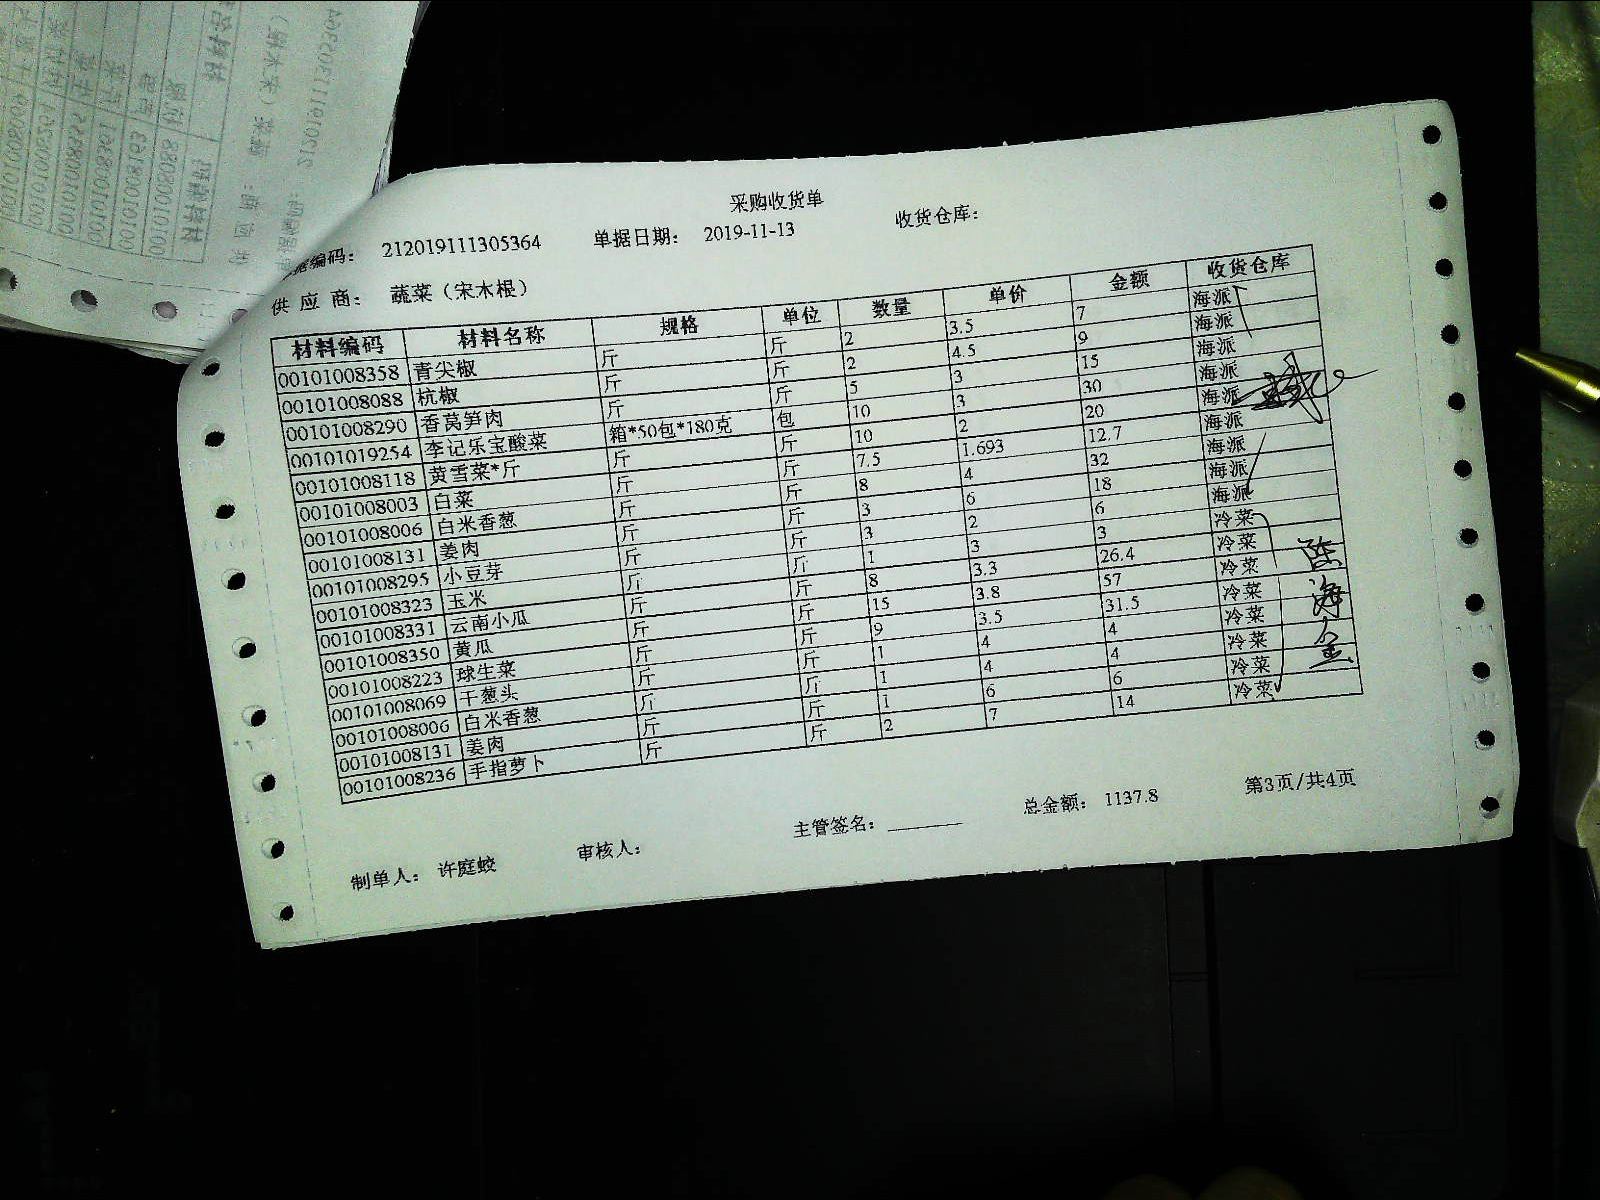 采购收货单
据编码: 212019111305364 单据日期: 2019-11-13 收货仓库:
供 应 商: 蔬菜（宋木根）
材料编码 材料名称 规格 单位 数量 单价 金额 收货仓库
00101008358 青尖椒 斤 斤 2 3.5 7 海派
00101008088 杭椒 斤 斤 2 4.5 9 海派
00101008290 香莴笋肉 斤 斤 5 3 15 海派
00101019254 李记乐宝酸菜 箱*50包*180克 包 10 3 30 海派
00101008118 黄雪菜*斤 斤 斤 10 2 20 海派
00101008003 白菜 斤 斤 7.5 1.693 12.7 海派
00101008006 白米香葱 斤 斤 8 4 32 海派
00101008131 姜肉 斤 斤 3 6 18 海派
00101008295 小豆芽 斤 斤 3 2 6 海派
00101008323 玉米 斤 斤 1 3 3 冷菜
00101008331 云南小瓜 斤 斤 8 3.3 26.4 冷菜
00101008350 黄瓜 斤 斤 15 3.8 57 冷菜
00101008223 球生菜 斤 斤 9 3.5 31.5 冷菜
00101008069 干葱头 斤 斤 1 4 4 冷菜
00101008006 白米香葱 斤 斤 1 4 4 冷菜
00101008131 姜肉 斤 斤 1 6 6 冷菜
00101008236 手指萝卜 斤 斤 2 7 14 冷菜
陈海金
制单人: 许庭蛟 审核人: 主管签名: 总金额: 1137.8 第3页/共4页